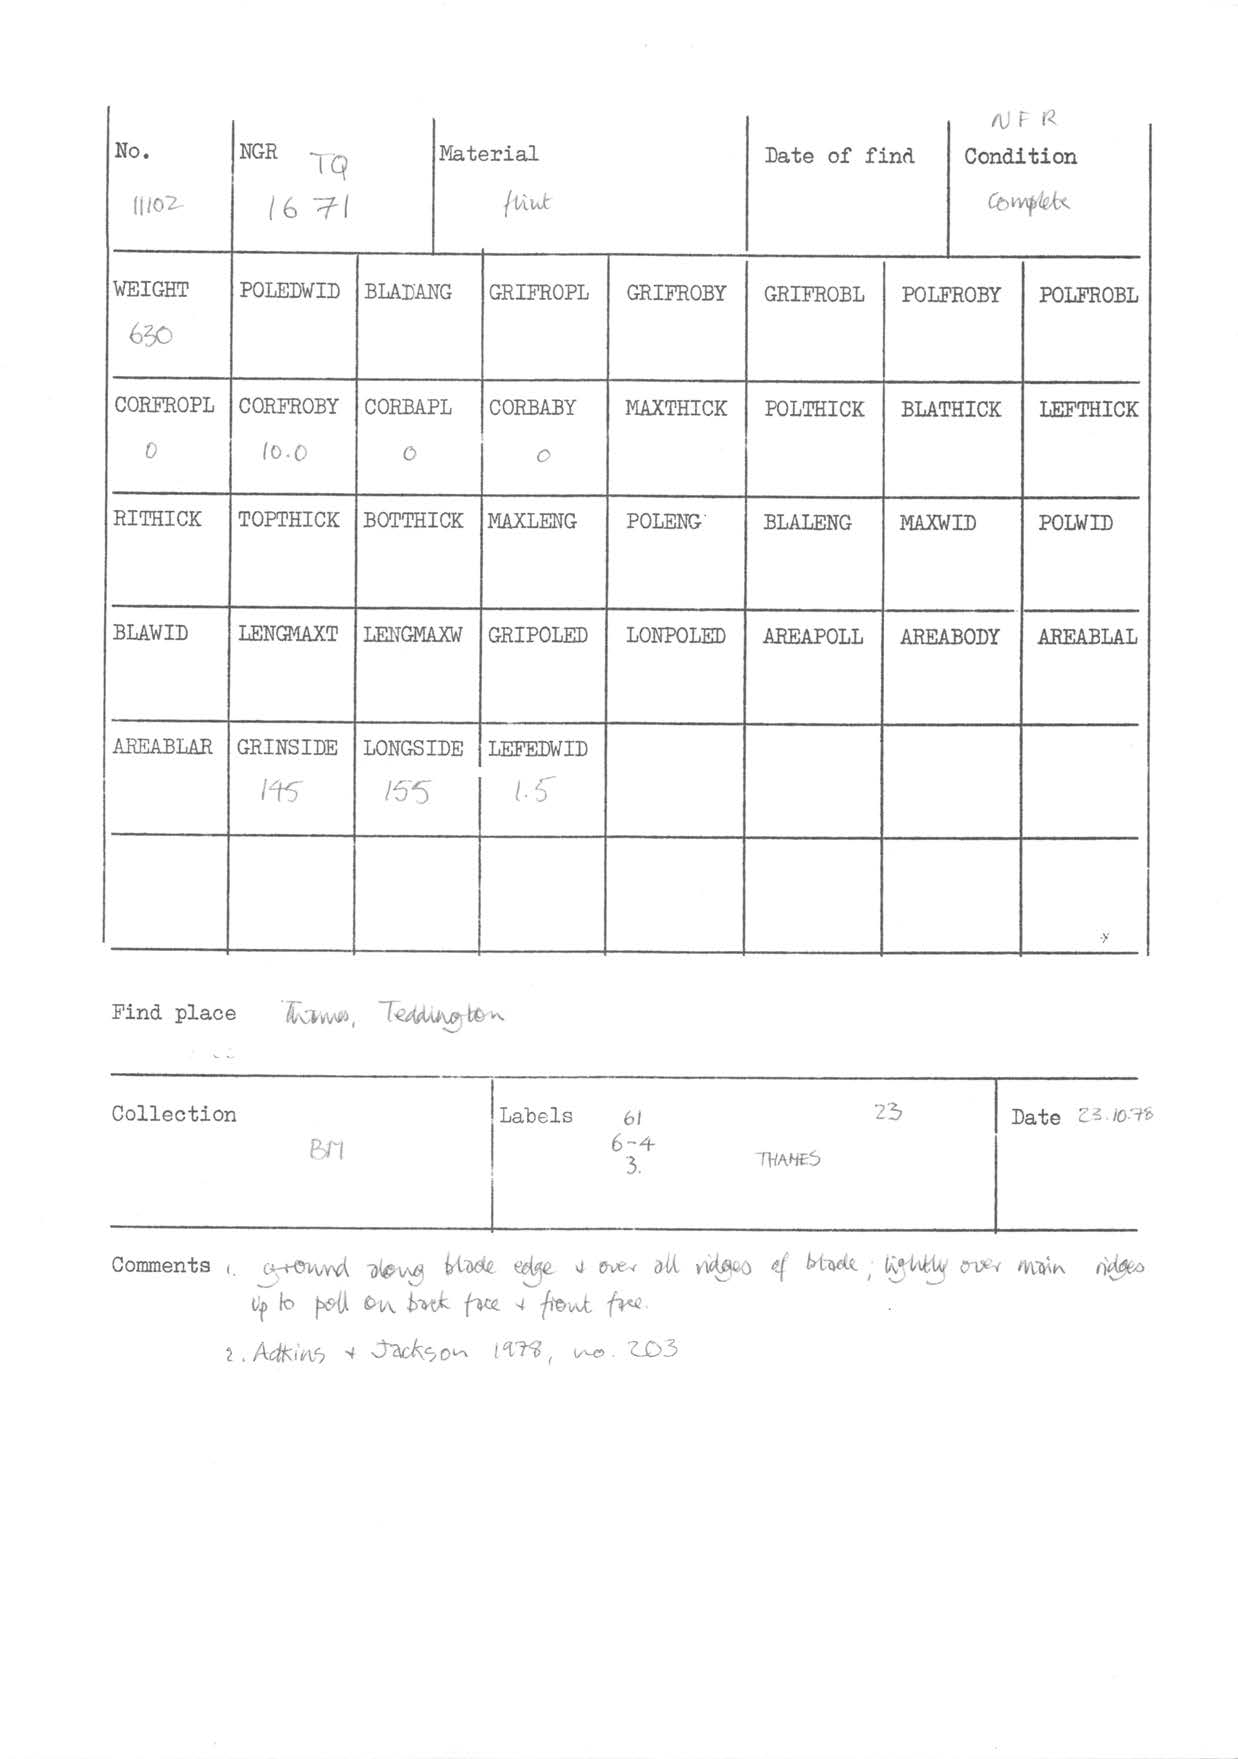 NFR
No. NGR TQ Material Date of find Condition
11102 16 71 flint complete
WEIGHT POLEDWID BLADANG GRIFROPL GRIFROBY GRIFROBL POLFROBY POLFROBL
630
CORFROPL CORFROBY CORBAPL CORBABY MAXTHICK POLTHICK BLATHICK LEFTHICK
0 10.0 0 0
RITHICK TOPTHICK BOTTHICK MAXLENG POLENG BLALENG MAXWID POLWID
BLAWID LENGMAXT LENGMAXW GRIPOLED LONPOLED AREAPOLL AREABODY AREABLAL
AREABLAR GRINSIDE LONGSIDE LEFEDWID
145 155 1.5
Find place Thames, Teddington
Collection Labels 61 23 Date 23.10.78
BM 6-4
3. THAMES
Comments 1. ground along blade edge + over all ridges of blade; lightly over main ridges
up to poll on back face + front face.
2. Adkins + Jackson 1978, no. 203